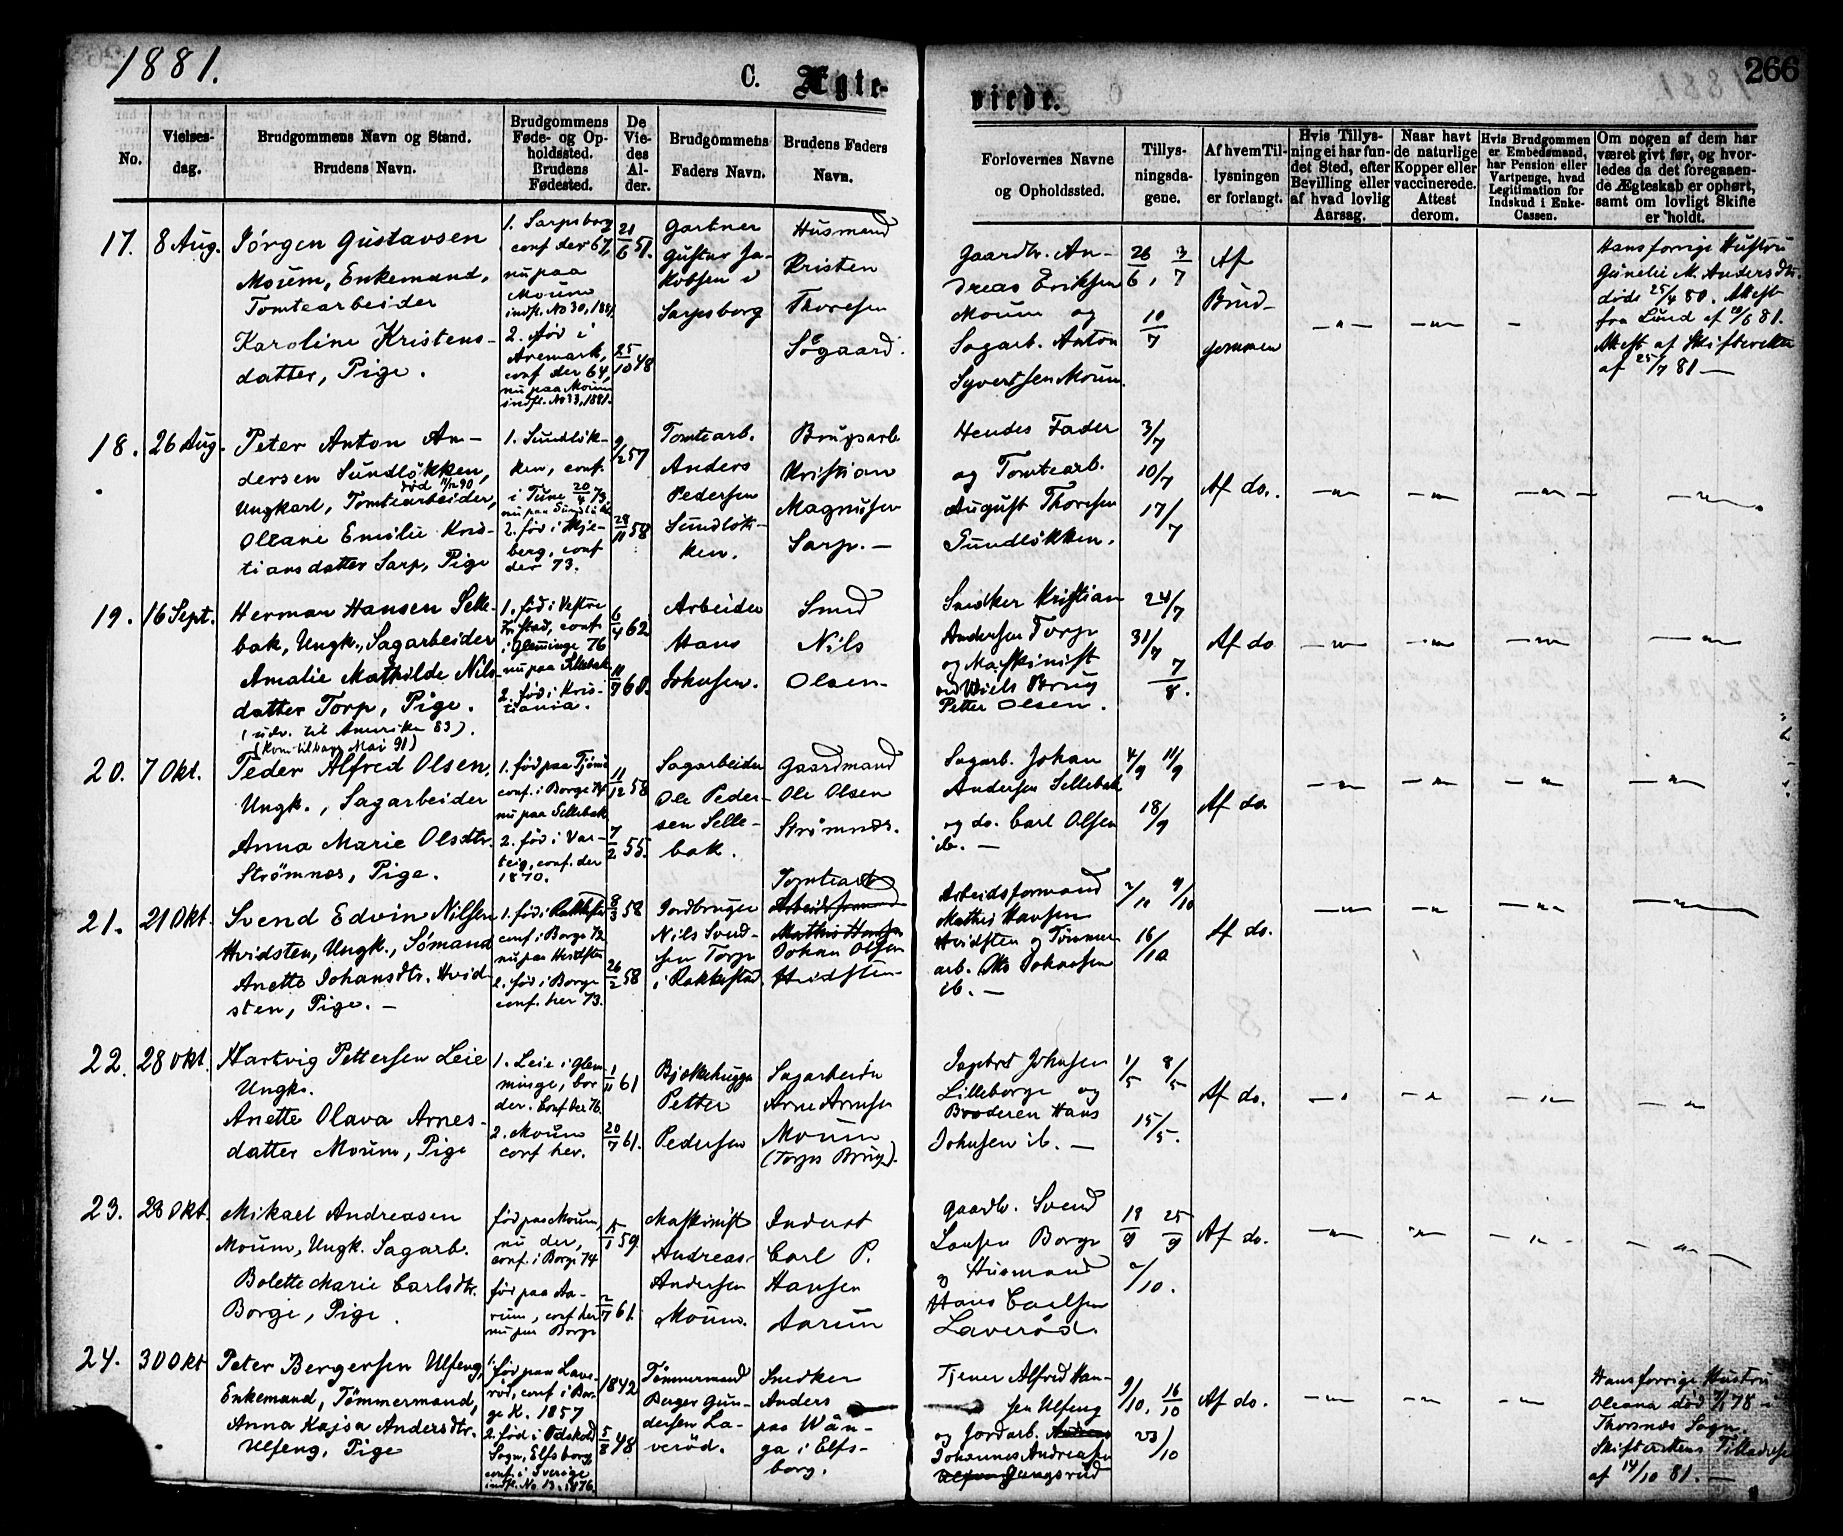 1881.
C. Ægte-
viede.
266
No.
Vielses-
dag.
Brudgommens Navn og Stand.
Brudens Navn.
Brudgommens
Føde- og Op-
holdssted.
Brudens
Fødested.
De
Vie-
des
Al-
der.
Brudgommens
Faders Navn.
Brudens Faders
Navn.
Forlovernes Navne
og Opholdssted.
Tillys-
ningsda-
gene.
Af hvem Til-
lysningen
er forlangt.
Hvis Tillys-
ning ei har fun-
det Sted, efter
Bevilling eller
af hvad lovlig
Aarsag.
Naar havt
de naturlige
Kopper eller
vaccinerede.
Attest
derom.
Hvis Brudgommen
er Embedsmand,
har Pension eller
Vartpenge, hvad
Legitimation for
Indskud i Enke-
Cassen.
Om nogen af dem har
været givt før, og hvor-
ledes da det foregaaen-
de Ægteskab er ophørt,
samt om lovligt Skifte
er holdt.
17. 8 Aug.
Jørgen Gustavsen
Moum, Enkemand,
Tomtearbeider
Karoline Kristens-
datter, Pige.
1. Sarpsborg
conf der 67,
nu paa
Moum
indfl. No 30, 1881,
2. fød i
Aremark,
conf der 64,
nu paa Moum
indfl. No 33, 1881.
21/6 51.
25/10 48
Gartner
Gustav Ja-
kobsen i
Sarpsborg
Husmand
Kristen
Thoresen
Søgaard.
Gaardbr. An-
dreas Eriksen
Moum og
Sagarb. Anton
Syvertsen Moum.
26/6, 3/7
10/7
Af
Brud-
gommen
Hans forrige Hustru
Gunelie M. Andersdtr.
døde 25/4 80. Attest
fra Lund af 10/6 81.
Attest af Skifteretten
af 25/7 81 —
18. 26 Aug.
Peter Anton An-
dersen Sundløkken,
død 11/12 90
Ungkarl, Tomtearbeider,
Oleane Emilie Kris-
tiansdatter Sarp, Pige
1. Sundløk-
ken, conf.
i Tune 20/4 73,
2. fød i Skje-
berg, conf
der 73.
9/2 57
28/11 58
Tomtearb.
Anders
Pedersen
Sundløk-
ken.
Brugsarb
Kristian
Magnusen
Sarp. —
Hendes Fader
og Tomtearb.
August Thoresen
Sundløkken.
3/7
10/7
17/7
Af do.
19. 16 Sept.
Herman Hansen Selle-
bak, Ungk., Sagarbeider
Amalie Mathilde Nils-
datter Torp, Pige.
(udv. til Amerika 83).
(Kom tilbage Mai 91)
1. fød i Vestre
Fr.stad, conf
i Glemminge 76
nu paa Sellebak
2. fød i Kris-
tiania.
6/4 62
11/9 60.
Arbeider
Hans
Johnsen.
Smed
Nils
Olsen
Snedker Kristian
Andersen Torp
og Maskinist
Petter Olsen.
24/7
31/7
7/8.
Af do
20. 7 Okt.
Peder Alfred Olsen,
Ungk., Sagarbeider
Anna Marie Olsdtr.
Strømnes, Pige.
1. fød paa Tjømø
conf. i Borge 74
nu paa Sellebak
2. fød i Var-
teig, conf. der
1870.
11/12 58
7/2 55.
Sagarbeider
Ole Peder-
sen Selle-
bak.
Gaardmand
Ole Olsen
Strømnes.
Sagarb. Johan
Andersen Sellebak
og do. Carl Olsen
ib. —
4/9 11/9
18/9
Af do.
21. 21 Okt.
Svend Edvin Nilsen
Hvidsten, Ungk., Sømand
Anette Johansdtr. Hvid-
sten, Pige. —
1. fød i Rakkestad
conf i Borge 72
nu paa Hvidsten
2. fød i Borge
conf. her 73.
8/3 58
26/2 58
Jordbruger
Nils Svend-
sen Torp
i Rakkestad.
Tomtearb
Arbeidsformand
Mathis Hansen
Johan Olsen
Hvidsten
Arbeidsformand
Mathis Hansen
Hvidsten og Tømmer-
arb. Ole Johansen
ib. —
2/10 9/10
16/10
Af do.
22. 28 Okt.
Hartvig Pettersen Leie
Ungk.
Anette Olava Arnes-
datter Moum, Pige
1. Leie i Glem-
minge, bor
der. Conf her 76.
2. Moum
conf her.
1/11 61
20/7 61.
Bjelkehugger
Petter
Pedersen
Sagarbeider
Arne Arnesen
Moum
(Torps Brug).
Ingebret Johnsen
Lilleborge og
Broderen Hans
Johnsen ib. —
1/5 8/5
15/5.
Af do.
23. 28 Okt.
Mikael Andreasen
Moum, Ungk. Sagarb.
Bolette Marie Carlsdtr.
Borge, Pige.
fød paa Moum,
nu der,
conf. i Borge 74
fød paa Aa-
rum, conf her
nu paa Borge
15/1 59.
2/7 61.
Maskinist
Andreas
Andersen
Moum.
Inderst
Carl P.
Hansen
Aarum
Gaardb. Svend
Larsen Borge
og Husmand
Hans Carlsen
Laverød.
18/9 25/9
2/10.
Af do.
24. 30 Okt
Peter Bergersen Ulfeng,
Enkemand, Tømmermand,
Anna Kajsa Andersdtr.
Ulfeng, Pige
1. fød paa Lave-
rød, conf i Bor-
ge K. 1857
2. fød i Ødskölds
Sogn, Elfsborg
conf. i Sverige
indfl. No 13. 1876.
1842
5/8 48
Tømmermand
Berger Gun-
dersen La-
verød.
Snedker
Anders
paa Wån-
ga i Elfs-
borg.
Tjener Alfred Han-
sen Ulfeng
og Jordarb.
Johannes Andreasen
9/10, 16/10
23/10
Af do.
Hans forrige Hustru
Oleana død 78 i
Thorsnæs Sogn.
Skifterettens Tilladelse
af 14/10 81. —